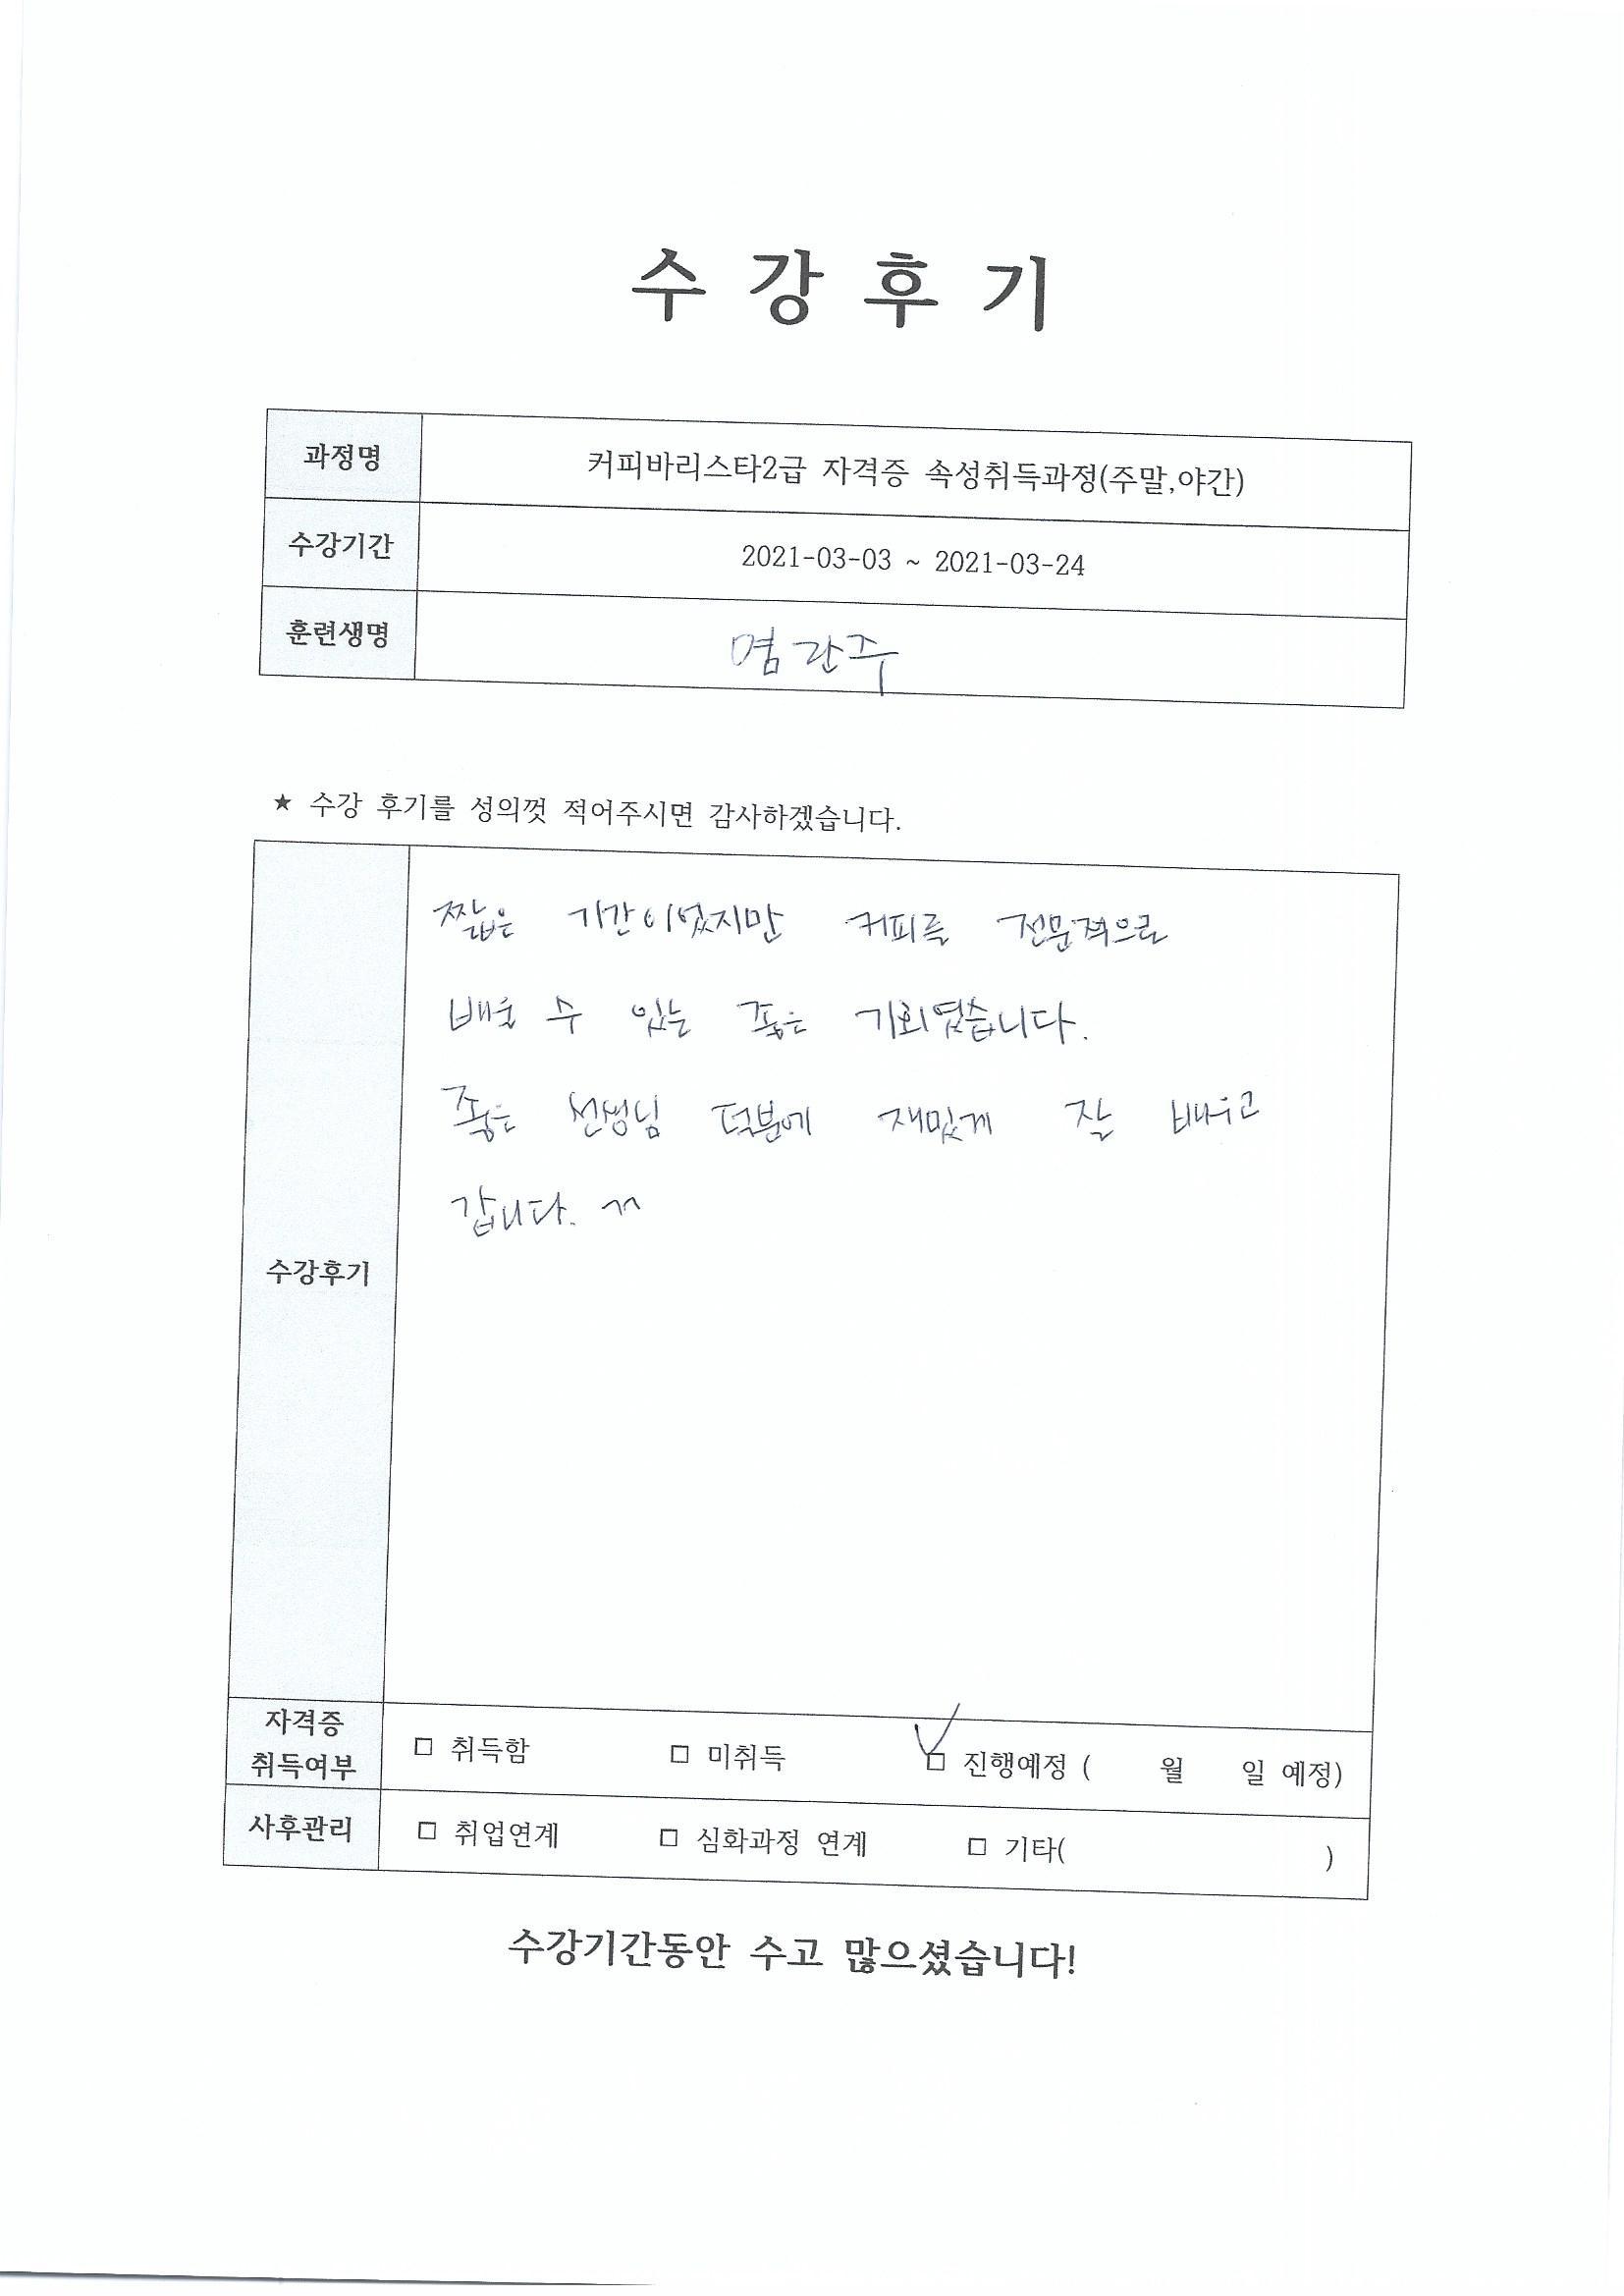 수강후기
과정명 커피바리스타2급 자격증 속성취득과정(주말,야간)
수강기간 2021-03-03 ~ 2021-03-24
훈련생명
★ 수강 후기를 성의껏 적어주시면 감사하겠습니다.
수강후기
짧은 기간이었지만 커피를 전문적으로
배울 수 있는 좋은 기회였습니다.
좋은 선생님 덕분에 재밌게 잘 배우고
갑니다. ^^
자격증
취득여부
□ 취득함 □ 미취득 ☑ 진행예정 ( 월 일 예정)
사후관리 □ 취업연계 □ 심화과정 연계 □ 기타( )
수강기간동안 수고 많으셨습니다!